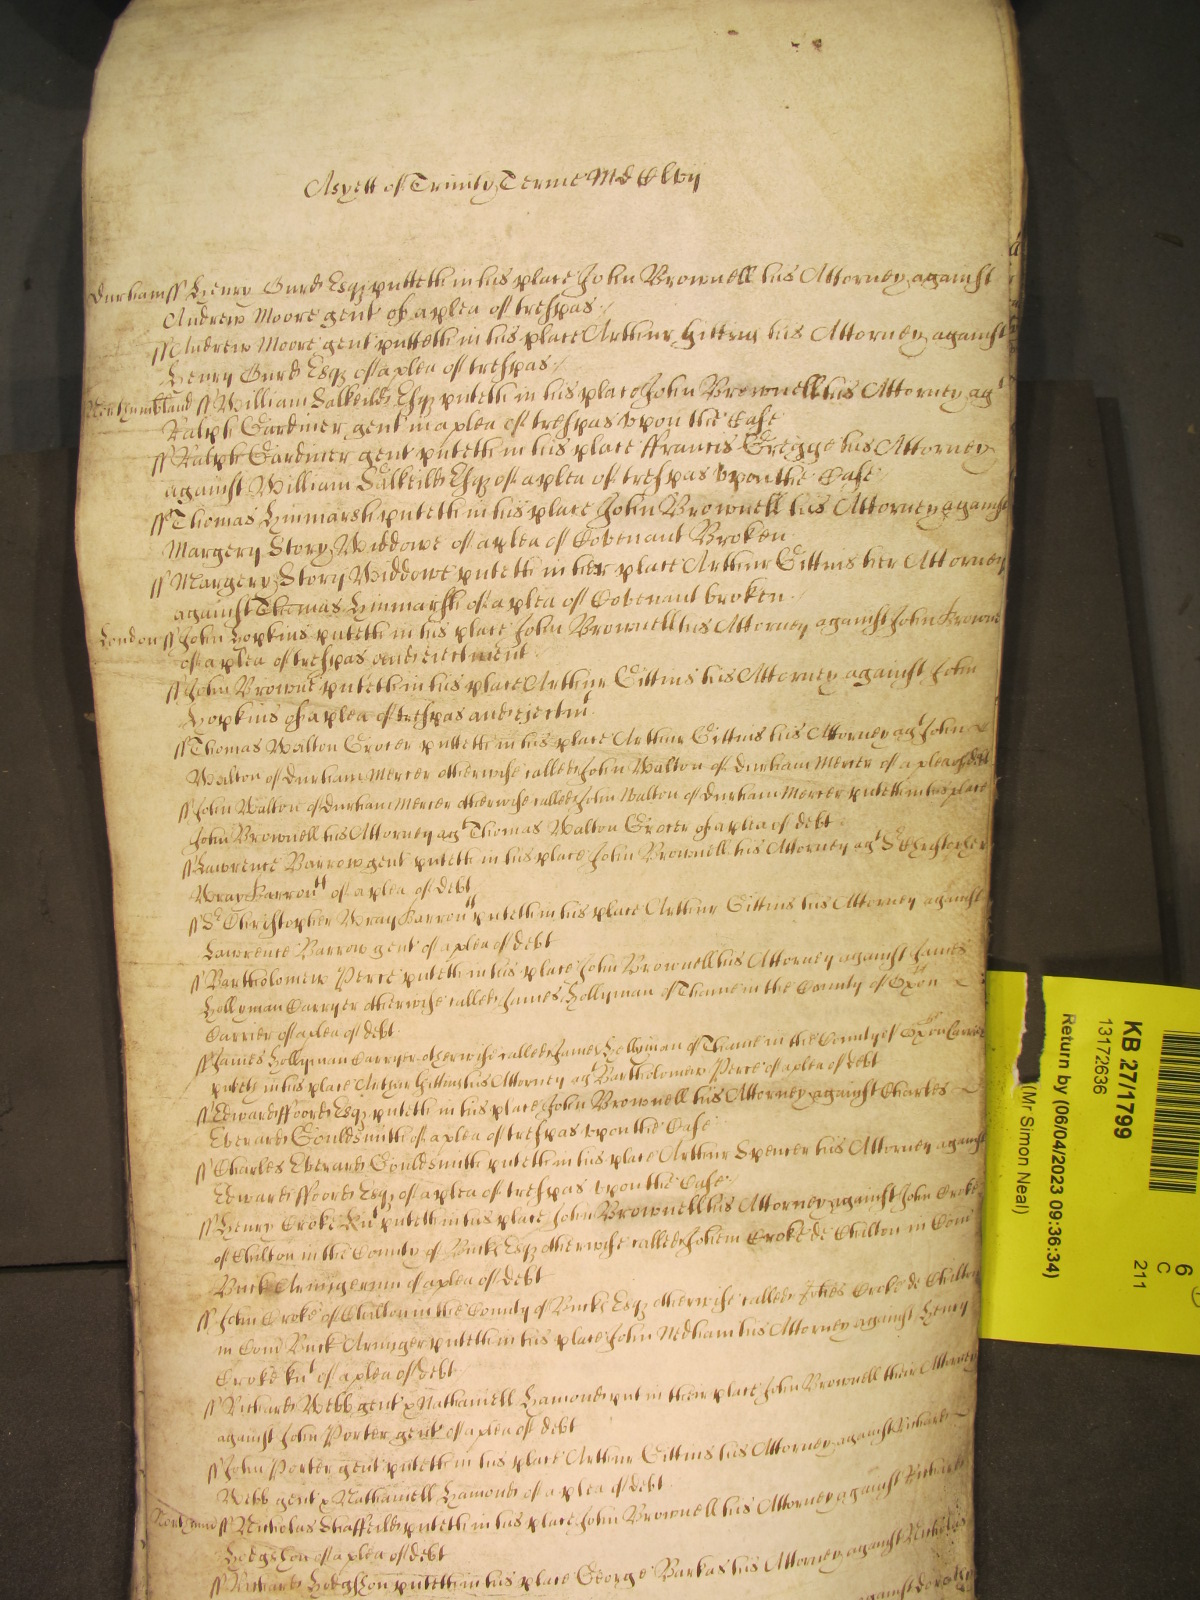 As yett of Trinity Terme MdClvij
Durham ss Henry Gurd Esqz putteth in his place John Brownell his Attorney against
Andrew Moore gent of a plea of trespas
ss Andrew Moore gent putteth in his place Arthur Gittins his Attorney against
Henry Gurd Esqz of a plea of trespas
Northumbland ss William Salkeild Esqz puteth in his place John Brownell his Attorney agt
Ralph Gardiner gent in a plea of trespas upon the Case
ss Ralph Gardiner gent puteth in his place ffrancis Gregge his Attorney
against William Salkeild Esqz of a plea of trespas upon the Case
ss Thomas Hinmarsh puteth in his place John Brownell his Attorney against
Margery Story Widdowe of a plea of Covenant Broken
ss Margery Story Widdowe puteth in her place Arthur Gittins her Attorney
against Thomas Hinmarsh of a plea of Covenant broken
London ss John Hopkins puteth in his place John Brownell his Attorney against John Browne
of a plea of trespas and eiectment
ss John Browne puteth in his place Arthur Gittins his Attorney against John
Hopkins of a plea of trespas and ejectmt
ss Thomas Walton Grocer putteth in his place Arthur Gittins his Attorney agt John
Walton of Durham Mercer otherwise called John Walton of Durham Mercer of a plea of debt
ss John Walton of Durham Mercer otherwise called John Walton of Durham Mercer puteth in his place
John Brownell his Attorney agt Thomas Walton Grocer of a plea of debt
ss Lawrence Barrow gent puteth in his place John Brownell his Attorney agt Sr Christopher
Wray Barrontt of a plea of debt
ss Sr Christopher Wray Barrontt puteth in his place Arthur Gittins his Attorney against
Lawrence Barrow gent of a plea of debt
ss Bartholomew Perce puteth in his place John Brownell his Attorney against James
Hollyman Carryer otherwise called James Hollyman of Thame in the County of Oxon
Carrier of a plea of debt
ss James Hollyman Carryer otherwise called James Hollyman of Thame in the County of Oxon Carrier
puteth in his place Arthur Gittins his Attorney agt Bartholomew Perce of a plea of debt
ss Edward ffoord Esqz puteth in his place John Brownell his Attorney against Charles
Everard Gouldsmith of a plea of trespas upon the Case
ss Charles Everard Gouldsmith puteth in his place Arthur Spencer his Attorney against
Edward ffoord Esqz of a plea of trespas upon the Case
ss Henry Croke Knt puteth in his place John Brownell his Attorney against John Croke
of Chilton in the County of Buck Esqz otherwise called Johem Croke de Chilton in Com
Buck Armigerum of a plea of debt
ss John Croke of Chilton in the County of Buck Esqz otherwise called Johes Croke de Chilton
in Com Buck Armiger puteth in his place John Nedham his Attorney against Henry
Croke knt of a plea of debt
ss Richard Webb gent & Nathaniell Hamond put in their place John Brownell their Attorney
against John Porter gent of a plea of debt
ss John Porter gent puteth in his place Arthur Gittins his Attorney against Richard
Webb gent & Nathaniell Hamond of a plea of debt
ss Nicholas Shaffeild puteth in his place John Brownell his Attorney against Richard
Hodgshon of a plea of debt
ss Richard Hodgshon puteth in his place George Barkas his Attorney against Nicholas
against
KB 27/1799
13172636
Return by (06/04/2023 09:36:34)
(Mr Simon Neal)
6
C
211